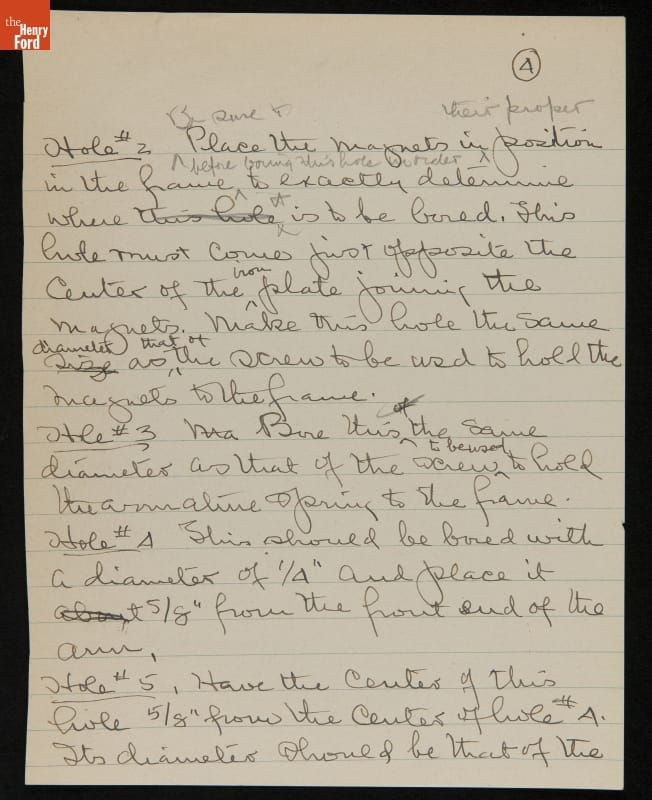 the
Henry
Ford
4
Be sure to their proper
Hole #2 Place the magnets in position
before boring this hole in order
in the frame to exactly determine
where this hole it is to be bored. This
hole must come just opposite the
iron
Center of the plate joining the
magnets. Make this hole the same
diameter that of
size as the screw to be used to hold the
magnets to the frame.
of
Hole #3 Ma Bore this the same
to be used
diameter as that of the screw to hold
the armature spring to the frame.
Hole #4 This should be bored with
a diameter of 1/4" and place it
about 5/8" from the front end of the
arm.
Hole #5, Have the Center of this
hole 5/8" from the Center of hole #4.
Its diameter should be that of the